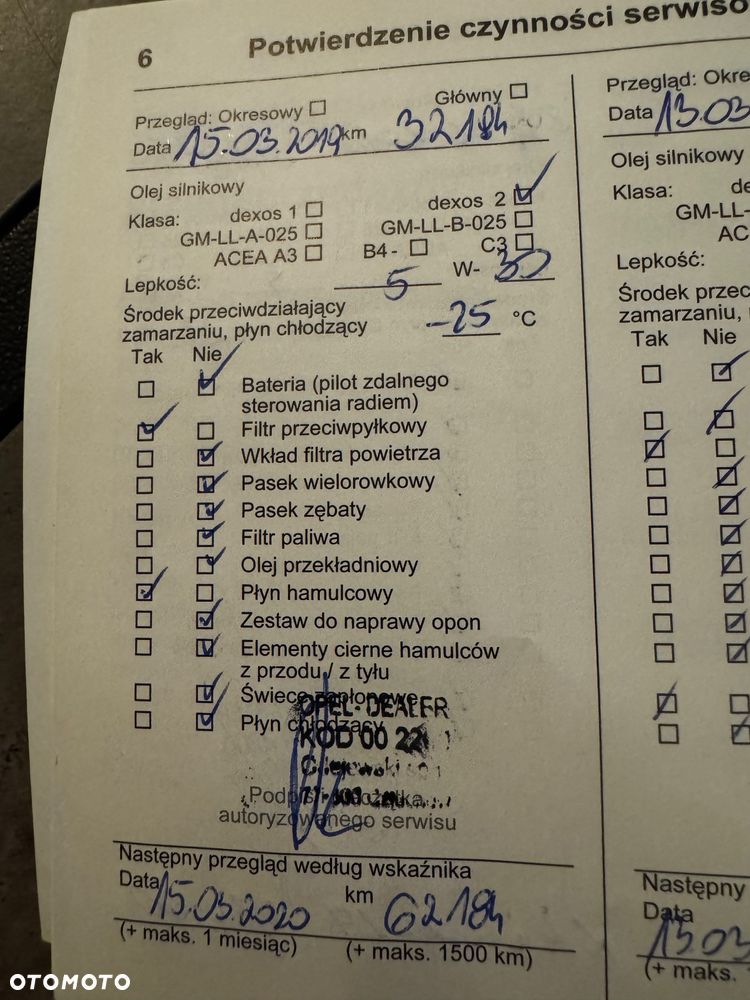 6 Potwierdzenie czynności serwiso
Przegląd: Okresowy Główny
Data 15.03.2019 km 32184
Olej silnikowy
Klasa: dexos 1 dexos 2
GM-LL-A-025 GM-LL-B-025
ACEA A3 B4- C3
Lepkość: 5 W- 30
Środek przeciwdziałający
zamarzaniu, płyn chłodzący -25 °C
Tak Nie
Bateria (pilot zdalnego
sterowania radiem)
Filtr przeciwpyłkowy
Wkład filtra powietrza
Pasek wielorowkowy
Pasek zębaty
Filtr paliwa
Olej przekładniowy
Płyn hamulcowy
Zestaw do naprawy opon
Elementy cierne hamulców
z przodu / z tyłu
Świece zapłonowe
Płyn chłodzący
OPEL-DEALER
KOD 00 22
autoryzowanego serwisu
Następny przegląd według wskaźnika
Data 15.03.2020 km 62184
(+ maks. 1 miesiąc) (+ maks. 1500 km)
Przegląd: Okre
Data 13.03
Olej silnikowy
Klasa: de
GM-LL-
AC
Lepkość:
Środek przec
zamarzaniu,
Tak Nie
Następny
Data
13.03
(+ maks.
OTOMOTO